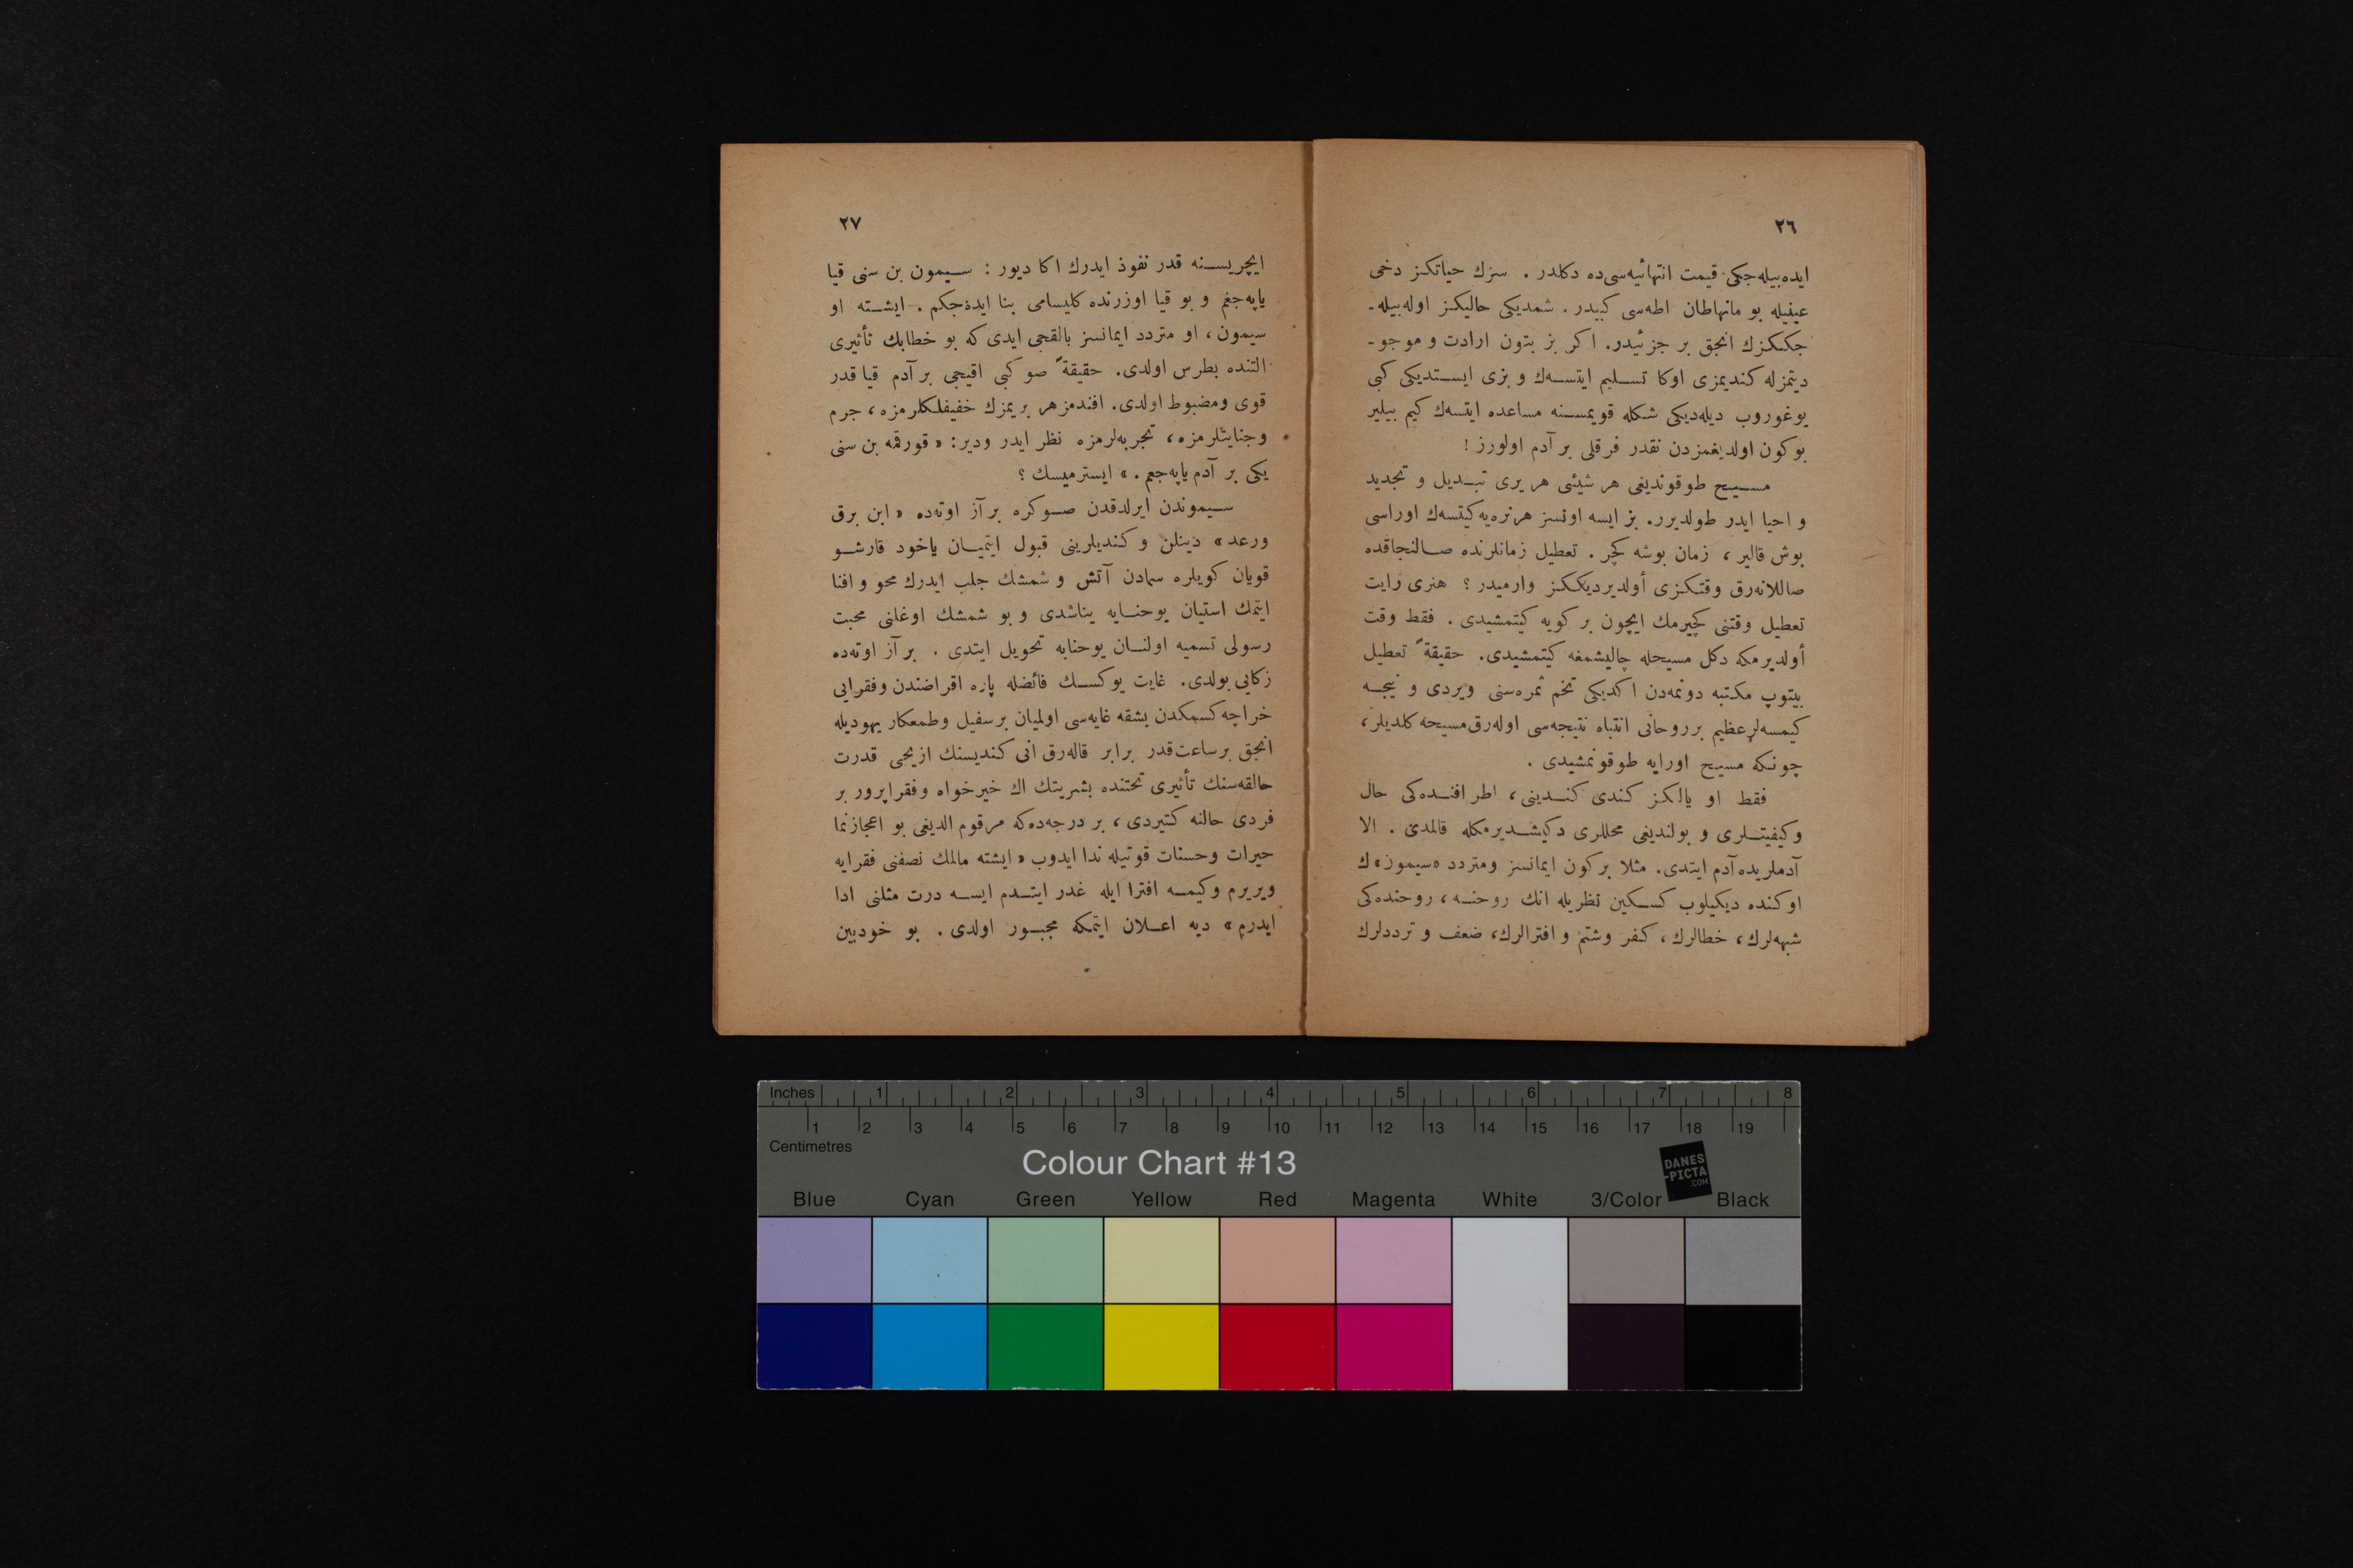 ٢٦
ايده‌بيله‌جكى قيمت انتهائيه‌سى‌ده دكلدر . سزك حياتكز دخى
عينيله بو مانهاطان اطه‌سى كبيدر . شمديكى حاليكز اوله‌بيله‌ـ
جككزك انجق بر جزئيدر. اكر بز بتون ارادت و موجو‌ـ
ديتمزله كنديمزى اوكا تسليم ايتسه‌ك و بزى ايستديكى كبى
يوغوروب ديله‌ديكى شكله قويمسنه مساعده ايتسه‌ك كيم بيلير
بوكون اولديغمزدن نقدر فرقلى بر آدم اولورز !
مسيح طوقونديغى هر شيئى هر يرى تبديل و تجديد
و احيا ايدر طولديرر. بز ايسه اونسز هرنره‌يه كيتسه‌ك اوراسى
بوش قالير ، زمان بوشه كچر . تعطيل زمانلرنده صالنجاقده
صاللانه‌رق وقتكزى أولديرديككز وارميدر ؟ هنرى رايت
تعطيل وقتنى كچيرمك ايچون بر كويه كيتمشيدى . فقط وقت
أولديرمكه دكل مسيحله چاليشمغه كيتمشيدى. حقيقةً تعطيل
بيتوپ مكتبه دونمه‌دن اكديكى تخم ثمره‌سنى ويردى و نيجه
كيمسه‌لر عظيم بر روحانى انتباه نتيجه‌سى اوله‌رق مسيحه كلديلر ،
چونكه مسيح اورايه طوقونمشيدى .
فقط او يالكز كندى كندينى ، اطرافنده‌كى حال
وكيفيتلرى و بولنديغى محللرى دكيشديرمكله قالمدى . الا
آدملريده آدم ايتدى. مثلا بركون ايمانسز ومتردد «سيمون»ك
اوكنده ديكيلوب كسكين نظريله انك روحنه ، روحنده‌كى
شبهه‌لرك ، خطالرك ، كفر وشتم و افترالرك ، ضعف و ترددلرك
٢٧
ايچريسنه قدر نفوذ ايدرك اكا ديور : سيمون بن سنى قيا
ياپه‌جغم و بو قيا اوزرنده كليسامى بنا ايده‌جكم . ايشته او
سيمون ، او متردد ايمانسز بالقجى ايدى كه بو خطابك تأثيرى
التنده بطرس اولدى. حقيقةً صو كبى اقيجى بر آدم قيا قدر
قوى ومضبوط اولدى. افندمز هر بريمزك خفيفلكلرمزه ، جرم
وجنايتلرمزه ، تجربه‌لرمزه نظر ايدر ودير: « قورقمه بن سنى
يكى بر آدم ياپه‌جغم . » ايسترميسك ؟
سيموندن ايرلدقدن صوكره بر آز اوته‌ده « ابن برق
ورعد » دينلن و كنديلرينى قبول ايتميان ياخود قارشو
قويان كويلره سمادن آتش و شمشك جلب ايدرك محو و افنا
ايتمك استيان يوحنايه يناشدى و بو شمشك اوغلنى محبت
رسولى تسميه اولنان يوحنايه تحويل ايتدى . بر آز اوته‌ده
زكايى بولدى. غايت يوكسك فائضله پاره اقراضندن وفقرايى
خراجه كسمكدن بشقه غايه‌سى اولميان بر سفيل وطمعكار يهوديله
انجق بر ساعت قدر برابر قاله‌رق انى كنديسنك ازيجى قدرت
خالقه‌سنك تأثيرى تحتنده بشريتك اك خيرخواه وفقراپرور بر
فردى حالنه كتيردى ، بر درجه‌ده كه مرقوم الديغى بو اعجازنما
خيرات وحسنات قوتيله ندا ايدوب « ايشته مالمك نصفنى فقرايه
ويريرم وكيمه افترا ايله غدر ايتدم ايسه درت مثلنى ادا
ايدرم » ديه اعلان ايتمكه مجبور اولدى . بو خودبين
Inches 1 2 3 4 5 6 7 8
1 2 3 4 5 6 7 8 9 10 11 12 13 14 15 16 17 18 19
Centimetres
Colour Chart #13
DANES
-PICTA
.COM
Blue Cyan Green Yellow Red Magenta White 3/Color Black